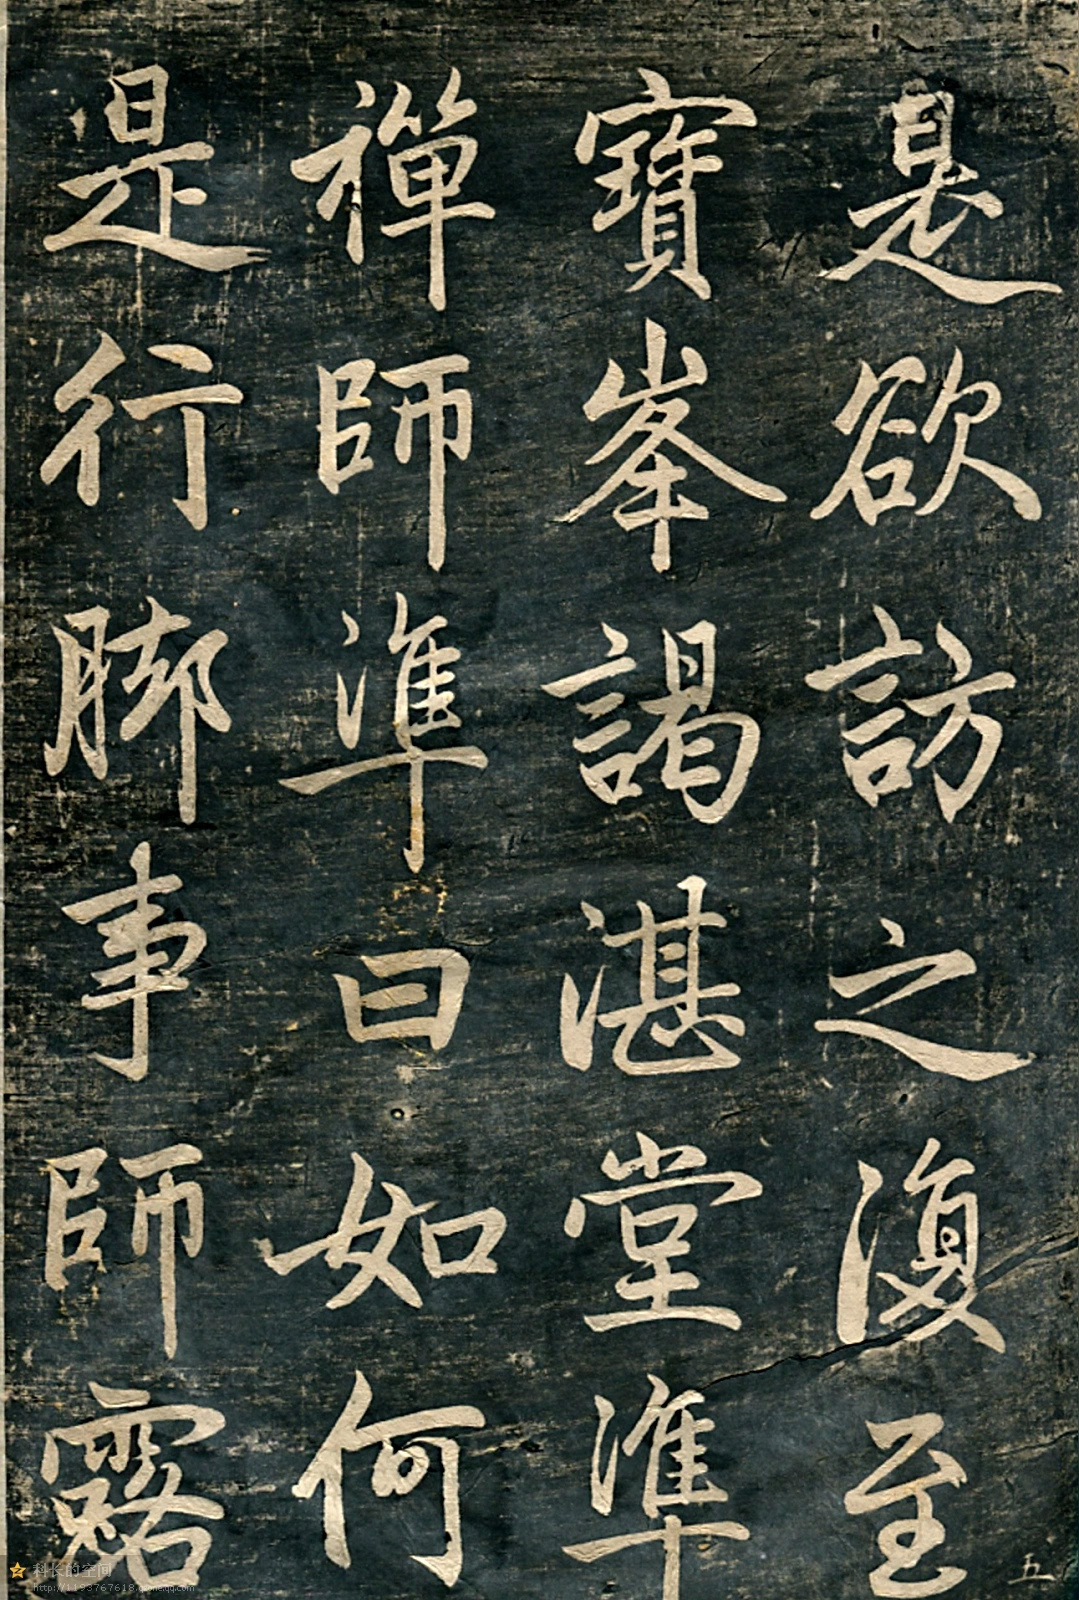 是欲訪之復至
寶峯謁湛堂準
禪師準曰如何
是行脚事師露
五
科长的空间
http://1193767618.qzone.qq.com